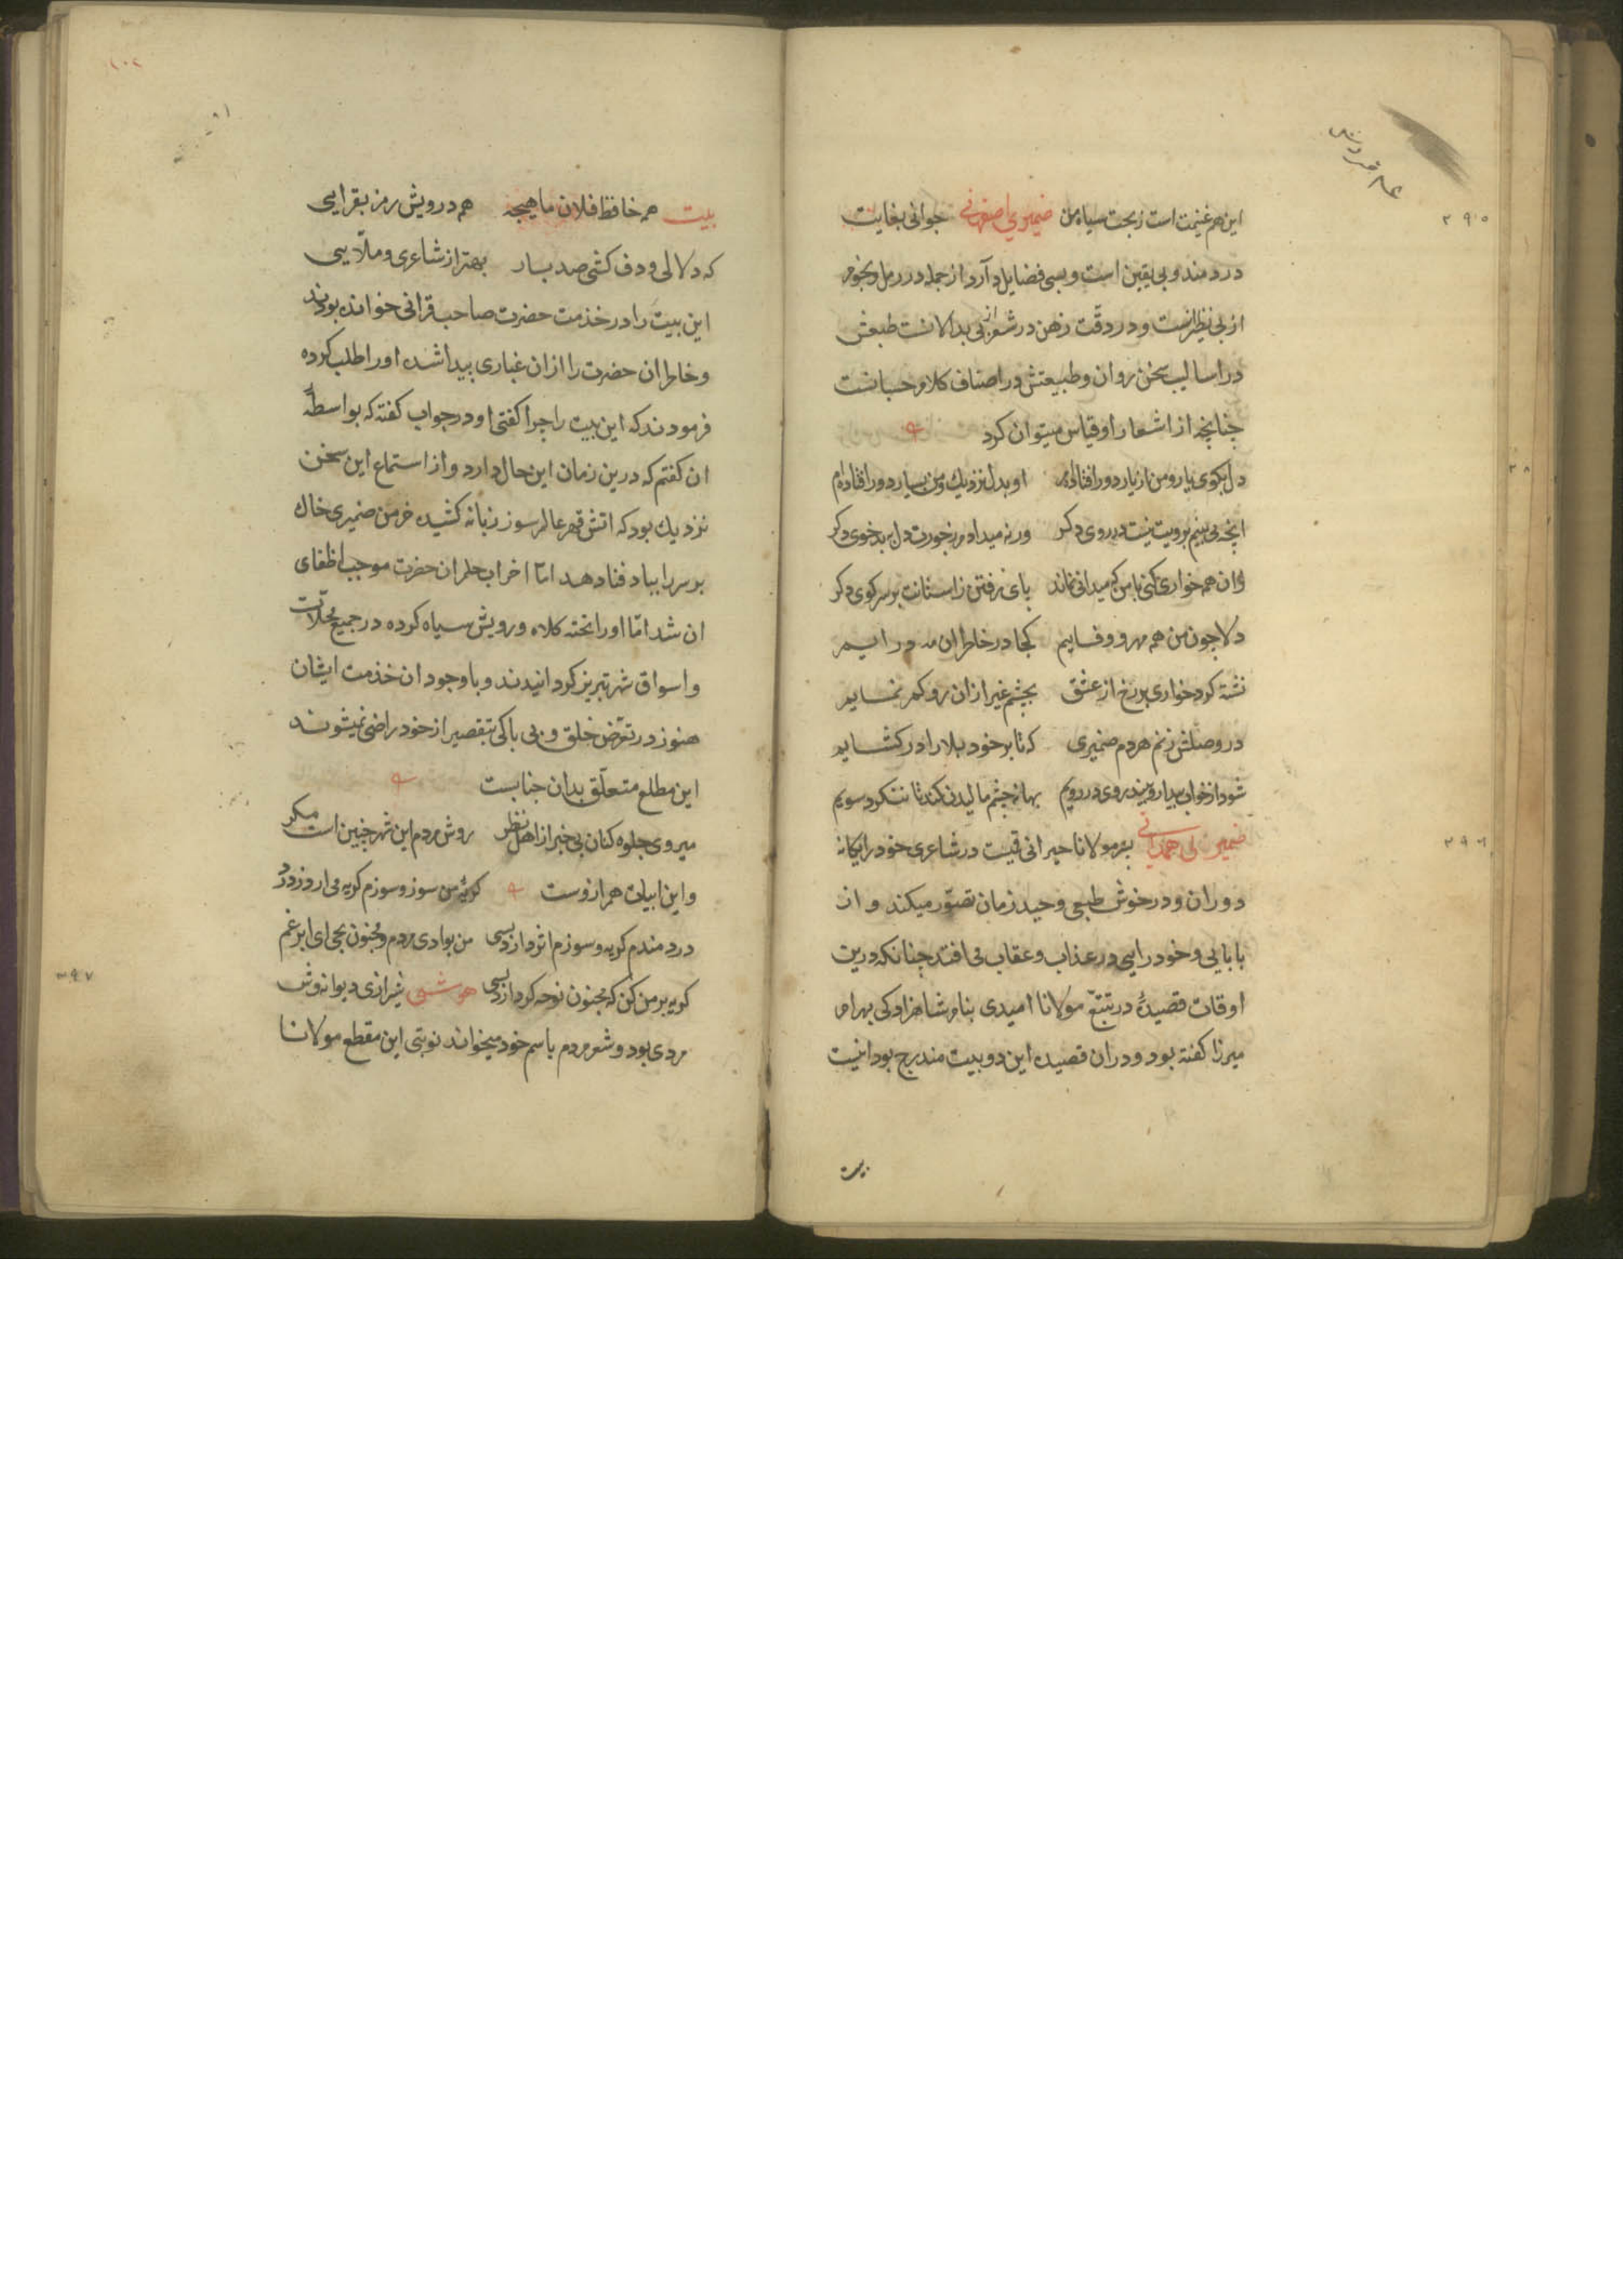 ۳۹۵
این هم غنیمت است ز بخت سیاه من ضمیری اصفهانی جوانی بغایت
دردمند و بی یقین است و بسی فضایل دارد از جمله در رمل و نجوم
از بی نظیرانست و در دقت ذهن در شعر از بی بدلانست طبعش
در اسالیب سخن روان و طبیعتش در اصناف کلام حسانست
چنانچه از اشعار او قیاس میتوان کرد
دل بکوی یار و من از یار دور افتاده‌ام او بدل نزدیک و من بسیار دور افتاده‌ام
انچه می بینم برویت نیست در روی دکر ورنه میدادم ز خورت دل ببدخوی دکر
وان همه خواری کنی با من که میدانی نماند پای رفتن ز استانت بر سر کوی دکر
دلا چون من همه مهر و وفایم کجا در خاطر ان مه درایم
نشسته کرد خواری بر رخ از عشق بچشم غیر ازان رو کم نمایم
در وصلش زنم هردم ضمیری که تا بر خود بلا را در کشایم
شود از خواب بیدار و بیند روی در رویم بهانه چشم مالیدن کند تا ننکرد سویم
۳۹۶
ضمیری همدانی پسر مولانا حیرانی قمیست در شاعری خود را یکانه
دوران و در خوش طبعی وحید زمان تصور میکند و از
بابایی و خودرایی در عذاب و عقاب می افتد چنانکه درین
اوقات قصیدهٔ در تتبع مولانا امیدی بنام شاهزادکی بهرام
میرزا کفته بود و دران قصیده این دو بیت مندرج بود اینست
بیت
۱۰۲
بیت همه حافظ فلان ماهیچه همه درویش رمز بقرایی
که دلالی و دف کشی صد بار بهتر از شاعری و ملّایی
این بیت را در خدمت حضرت صاحب قرانی خوانده بودند
و خاطر ان حضرت را ازان غباری پیدا شده او را طلب کرده
فرمودند که این بیت را چرا کفتی او در جواب کفته که بواسطهٔ
ان کفتم که درین زمان این حال دارد و از استماع این سخن
نزدیک بود که اتش قهر عالم سوز زبانه کشیده خرمن ضمیری خاک
بر سر را بباد فنا دهد امّا اخر اب حلم ان حضرت موجب اطفای
ان شد امّا او را تخته کلاه و رویش سیاه کرده در جمیع محلّات
و اسواق شهر تبریز کردانیدند و با وجود ان خدمت ایشان
هنوز در تعرّض خلق و بی باکی بتقصیر از خود راضی نمیشوند
این مطلع متعلّق بدان جنابست
میروی جلوه کنان بی خبر از اهل نظر روش مردم این شهر چنین است مکر
و این ابیات هم ازوست کریه من سوز و سوزم کریه می ارد ز درد
دردمندم کریه و سوزم اثر دارد بسی من بوادی مردم و مجنون بحی ای ابر غم
۳۹۷
کریه بر من کن که مجنون نوحه کر دارد بسی هوشی شیرازی دیوانه وش
مردی بود و شعر مردم باسم خود میخواند نوبتی این مقطع مولانا